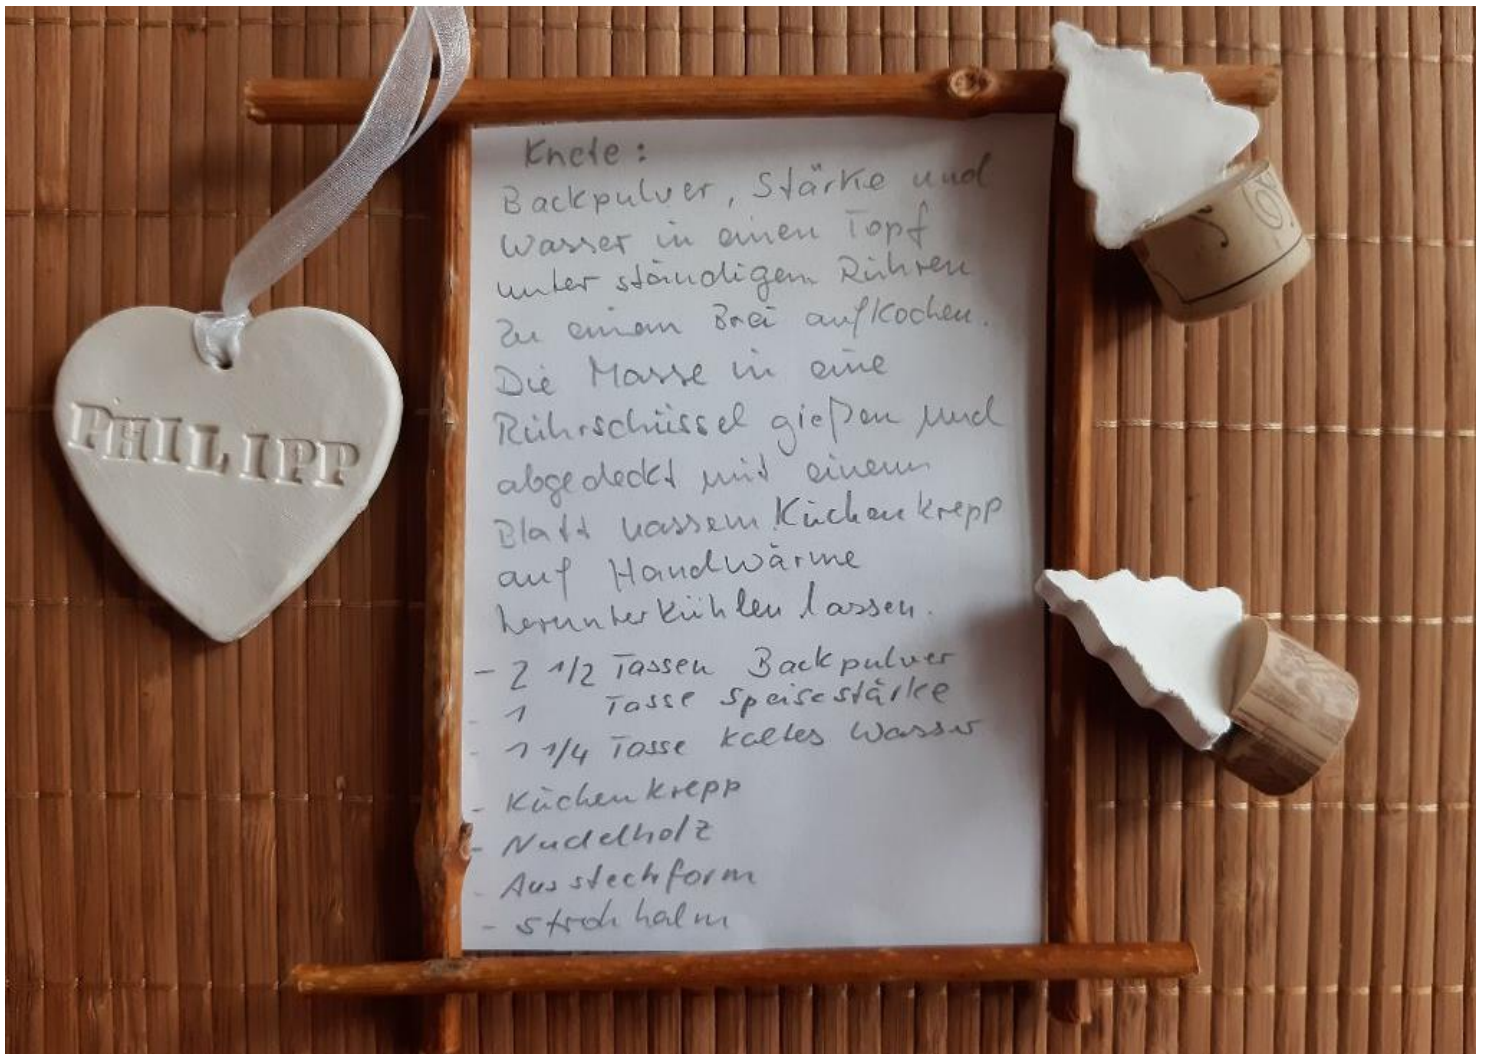 PHILIPP
Knete:
Backpulver, Stärke und
Wasser in einen Topf
unter ständigem Rühren
zu einem Brei aufkochen.
Die Masse in eine
Rührschüssel gießen und
abgedeckt mit einem
Blatt nassem Küchenkrepp
auf Handwärme
herunterkühlen lassen.
- 2 1/2 Tassen Backpulver
- 1 Tasse Speisestärke
- 1 1/4 Tasse kaltes Wasser
- Küchenkrepp
- Nudelholz
- Ausstechform
- Strohhalm